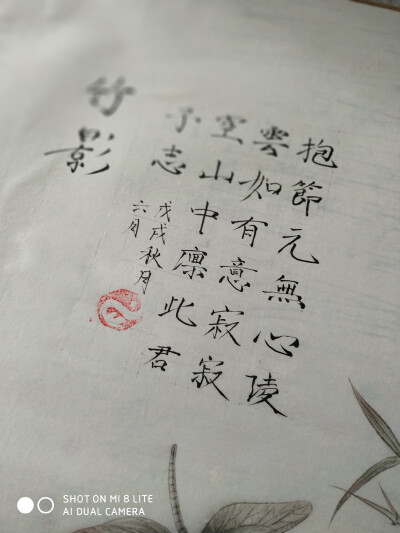 抱節元無心陵
雲如有意寂寂
空山中廪此君
子志
戊戌秋月
六月
竹影
SHOT ON MI 8 LITE
AI DUAL CAMERA